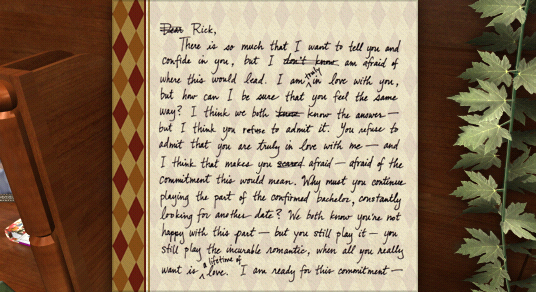 Dear Rick,
There is so much that I want to tell you and
confide in you, but I don't know am afraid of
where this would lead. I am truly in love with you,
but how can I be sure that you feel the same
way? I think we both know the answer —
but I think you refuse to admit it. You refuse to
admit that you are truly in love with me — and
I think that makes you scared afraid — afraid of the
commitment this would mean. Why must you continue
playing the part of the confirmed bachelor, constantly
looking for another date? We both know you're not
happy with this part — but you still play it — you
still play the incurable romantic, when all you really
want is a lifetime of love. I am ready for this commitment —